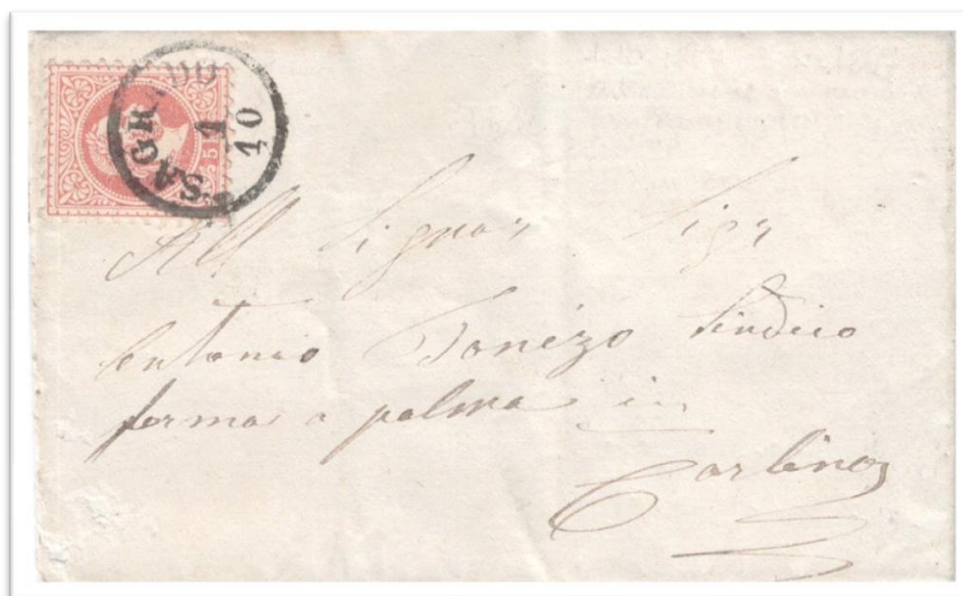 SAGRADO
1
10
5
All Signor Sigr
Antonio Sindico
ferma a palma in
Carlino